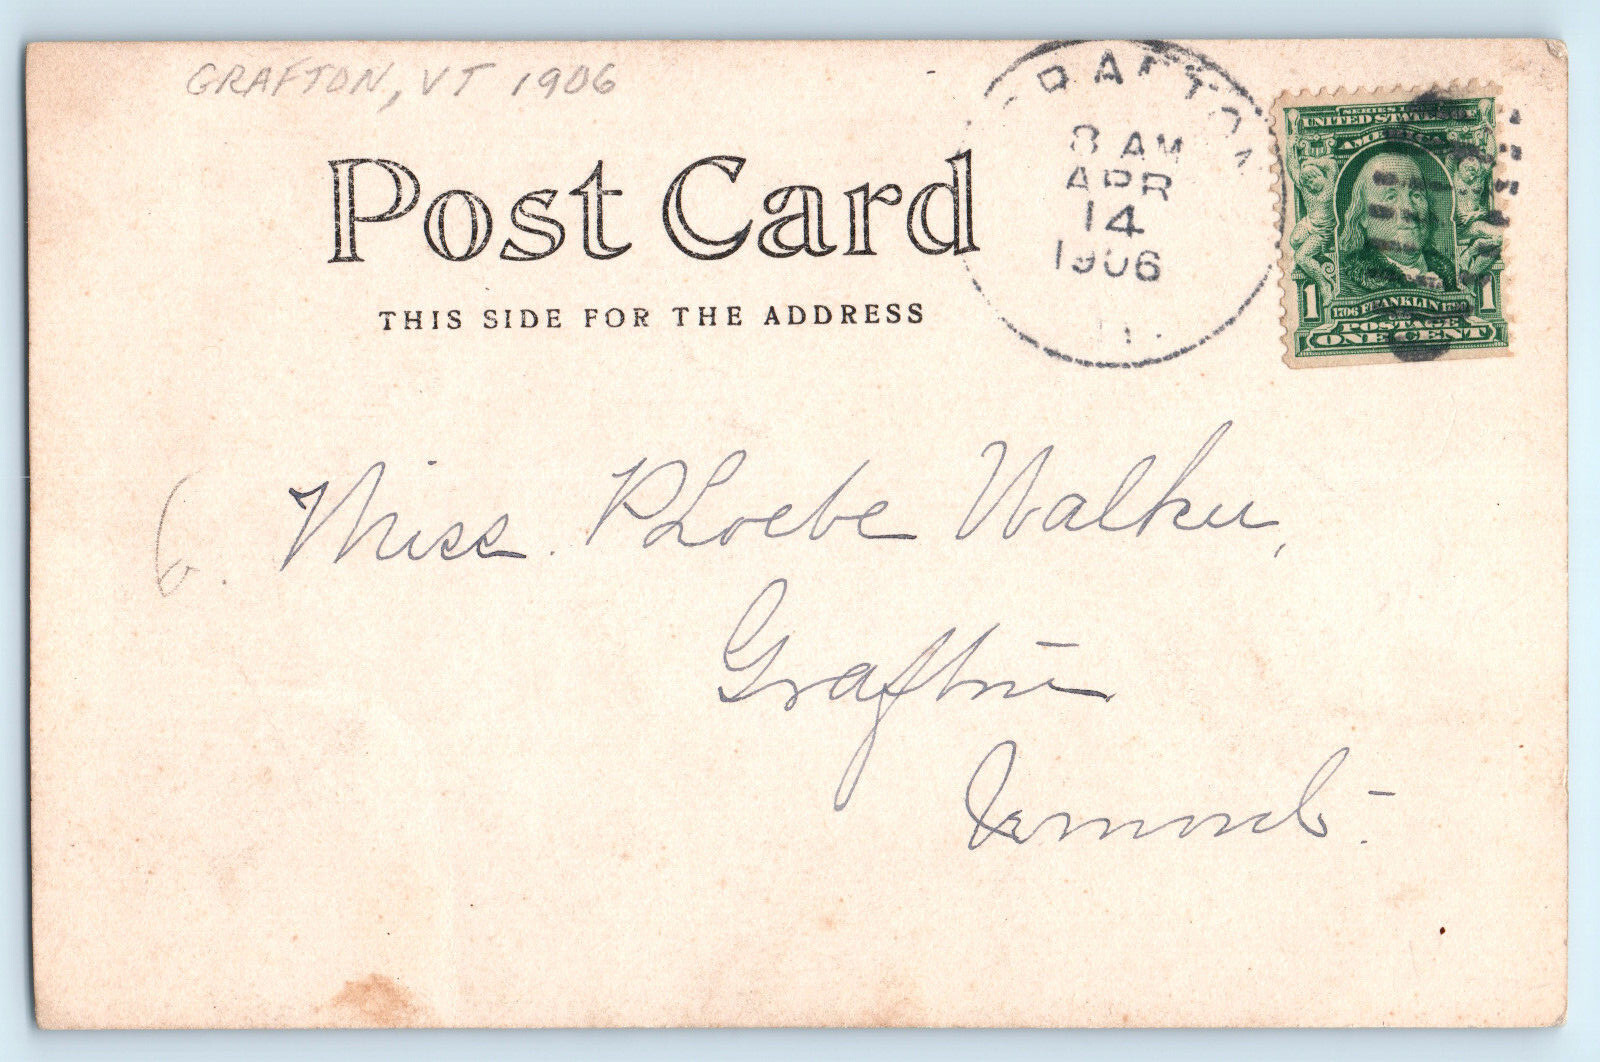 GRAFTON, VT 1906
GRAFTON
8 AM
APR
14
1906
SERIES 1902
UNITED STATES OF
AMERICA
1 1706 FRANKLIN 1790 1
POSTAGE
ONE CENT
Post Card
THIS SIDE FOR THE ADDRESS
6. Miss. Phoebe Walker,
Grafton
Vermont.